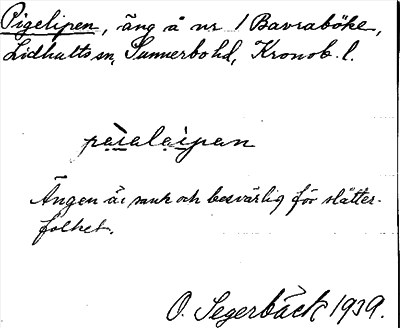 Pigelipen, äng å nr 1 Bavraböke,
Lidhults sn, Sunnerbo hd, Kronob. l.
païalaipan
Ängen är sank och besvärlig för slätter-
folket.
O. Segerbäck 1939.